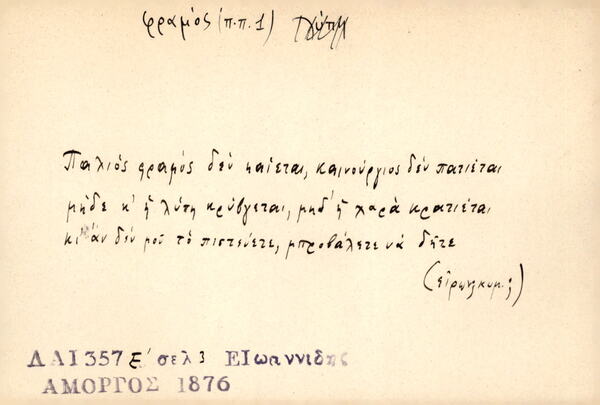 φραμός (π.π. 1)
Παλιός φραμός δέν καίεται, καινούργιος δέν πατιέται
μήδε κ' ἡ λύπη κρύβγεται, μηδ' ἡ χαρά κρατιέται
κι ἄν δέν μοῦ τό πιστεύετε, μπροβάλετε νά δῆτε
ΔΑΙ 357 ξ' σελ 3 ΕΙωαννιδης
ΑΜΟΡΓΟΣ 1876